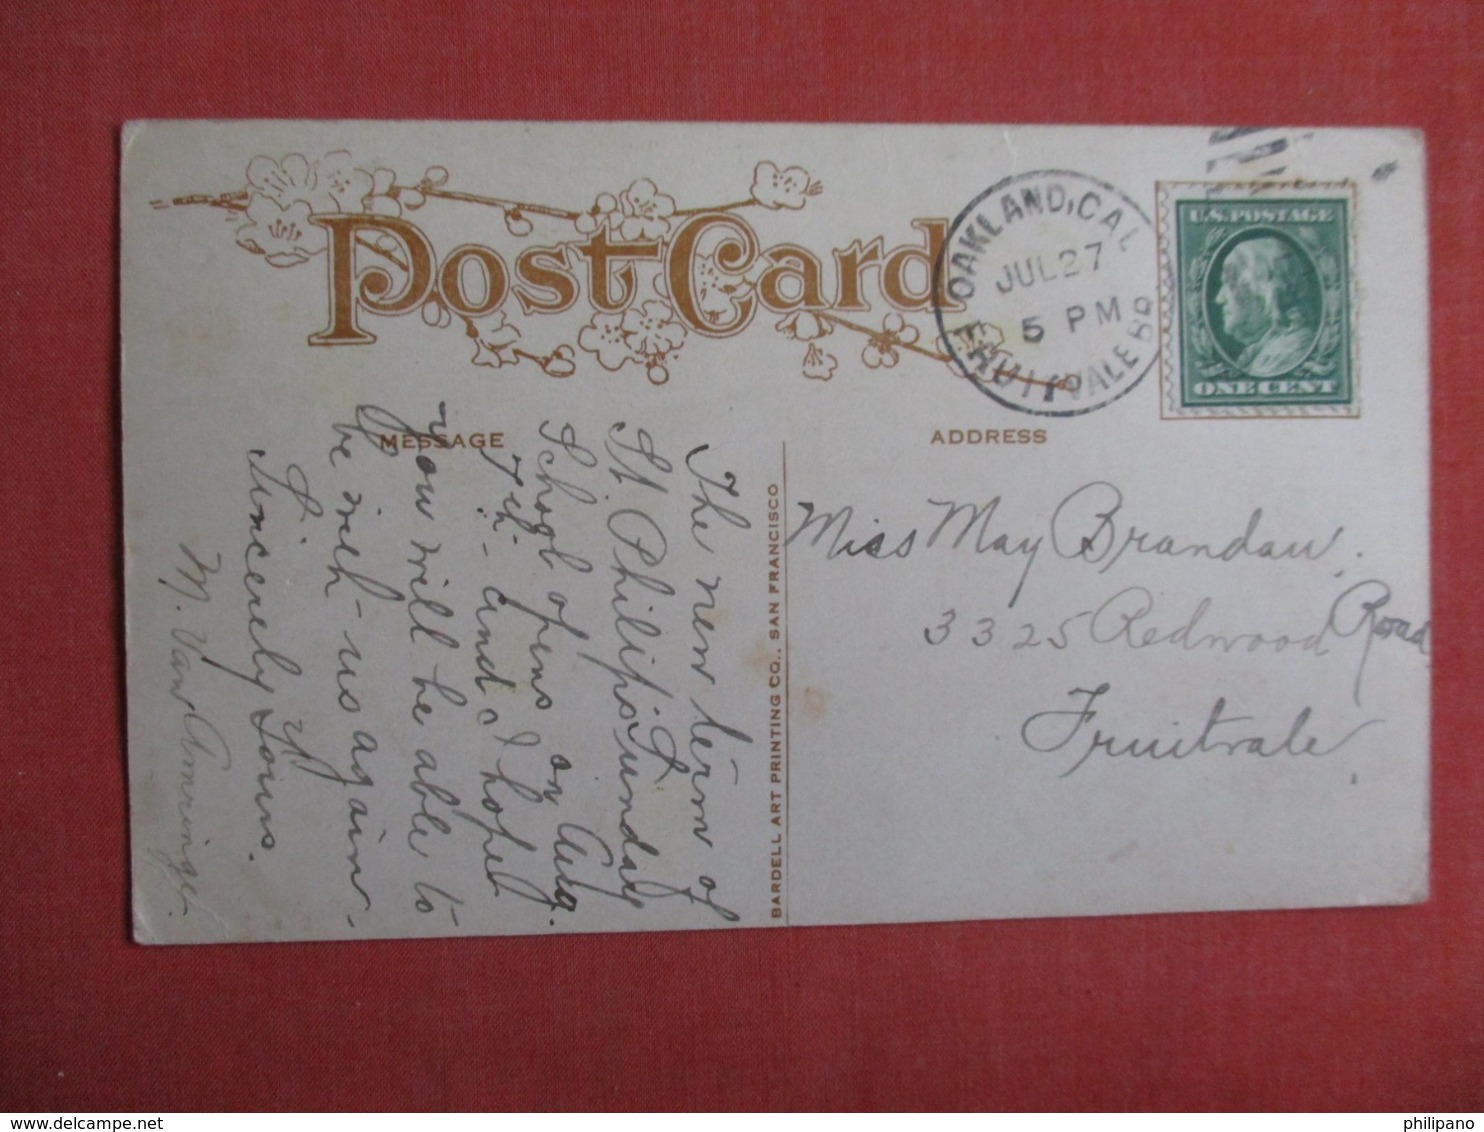 Post Card
OAKLAND, CAL
JUL 27
5 PM
FRUITVALE
U.S. POSTAGE
ONE CENT
MESSAGE
ADDRESS
The new term of
St Philip's Sunday
School opens on Aug.
7th - and I hope
you will be able to
be with us again -
Sincerely Yours.
M. Van Amringe.
BARDELL ART PRINTING CO., SAN FRANCISCO
Miss May Brandau.
3325 Redwood Road
Fruitvale.
philipano
www.delcampe.net